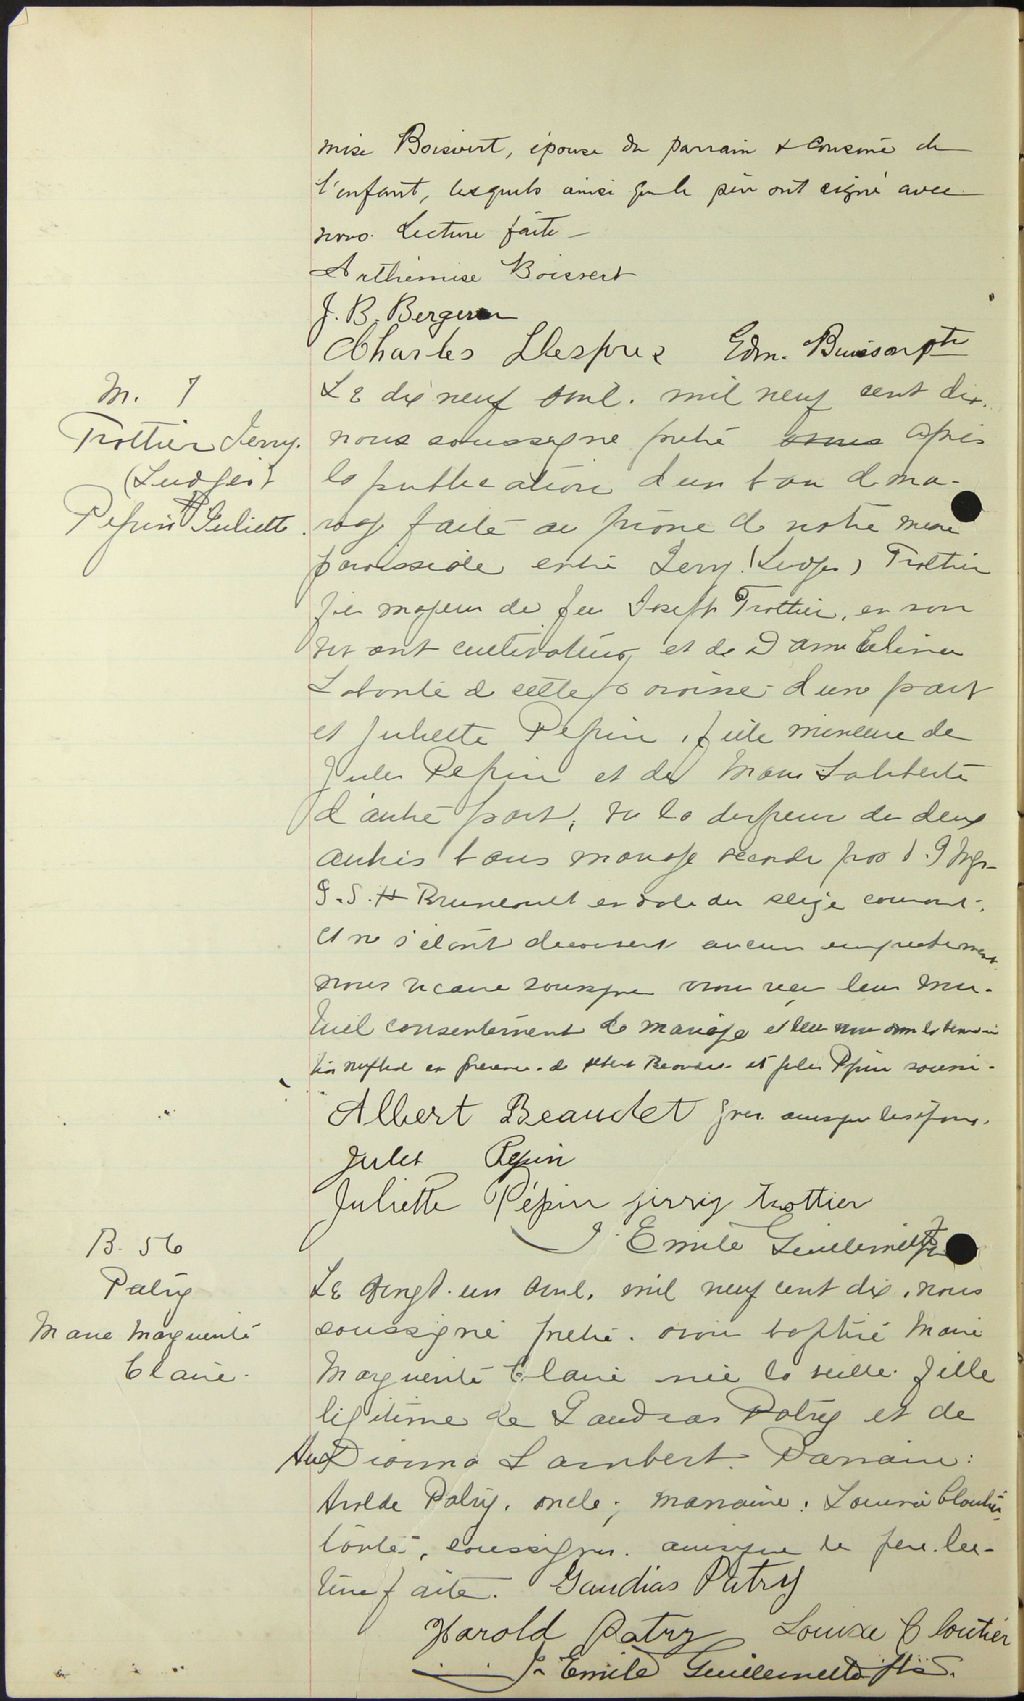 mise Boisvert, épouse du parrain & cousine de
l'enfant, lesquels ainsi que le père ont signé avec
nous. Lecture faite –
Arthémise Boisvert
J. B. Bergeron
Charles Despres Edm. Buisson ptr
M. 7
Trottier Jerry.
(Ludger)
Pepin Juliette.
Le dix neuf avril. mil neuf cent dix.
nous soussigné prêtre après
la publication d'un ban de ma-
riage faite au prône de notre messe
paroissiale entre Jerry (Ludger) Trottier
fils majeur de feu Joseph Trottier, en son
vivant cultivateur, et de Dame Celina
Labonté de cette paroisse d'une part
et Juliette Pepin, fille mineure de
Jules Pepin et de Marie Laliberté
d'autre part, vu la dispense de deux
autres bans mariage accordé par S. G Mgr
J. S. H Brunault en date du siege courant.
et ne s'étant découvert aucun empêchement
nous vicaire soussigné avons reçu leur mu-
tuel consentement de mariage et leur avons donné la bénédic
tion nuptiale en présence de Albert Beaudet et Jules Pepin soussi-
Albert Beaudet gnés ainsi que les époux.
Jules Pepin
Juliette Pépin jirry trottier
J. Emile Guillemette ptr
B. 56
Patry
Marie Marguerite
Claire.
Le vingt-un avril, mil neuf cent dix, nous
soussigné prêtre. avons baptisé Marie
Marguerite Claire née la veille. fille
légitime de Gaudias Patry et de
Dionna Lambert. Parrain:
Arolde Patry. oncle; marraine: Louisia Cloutier
tante, soussignés. ainsi que le père. lec-
ture faite. Gaudias Patry
Harold Patry Louise Cloutier
J. Emile Guillemette ptr.